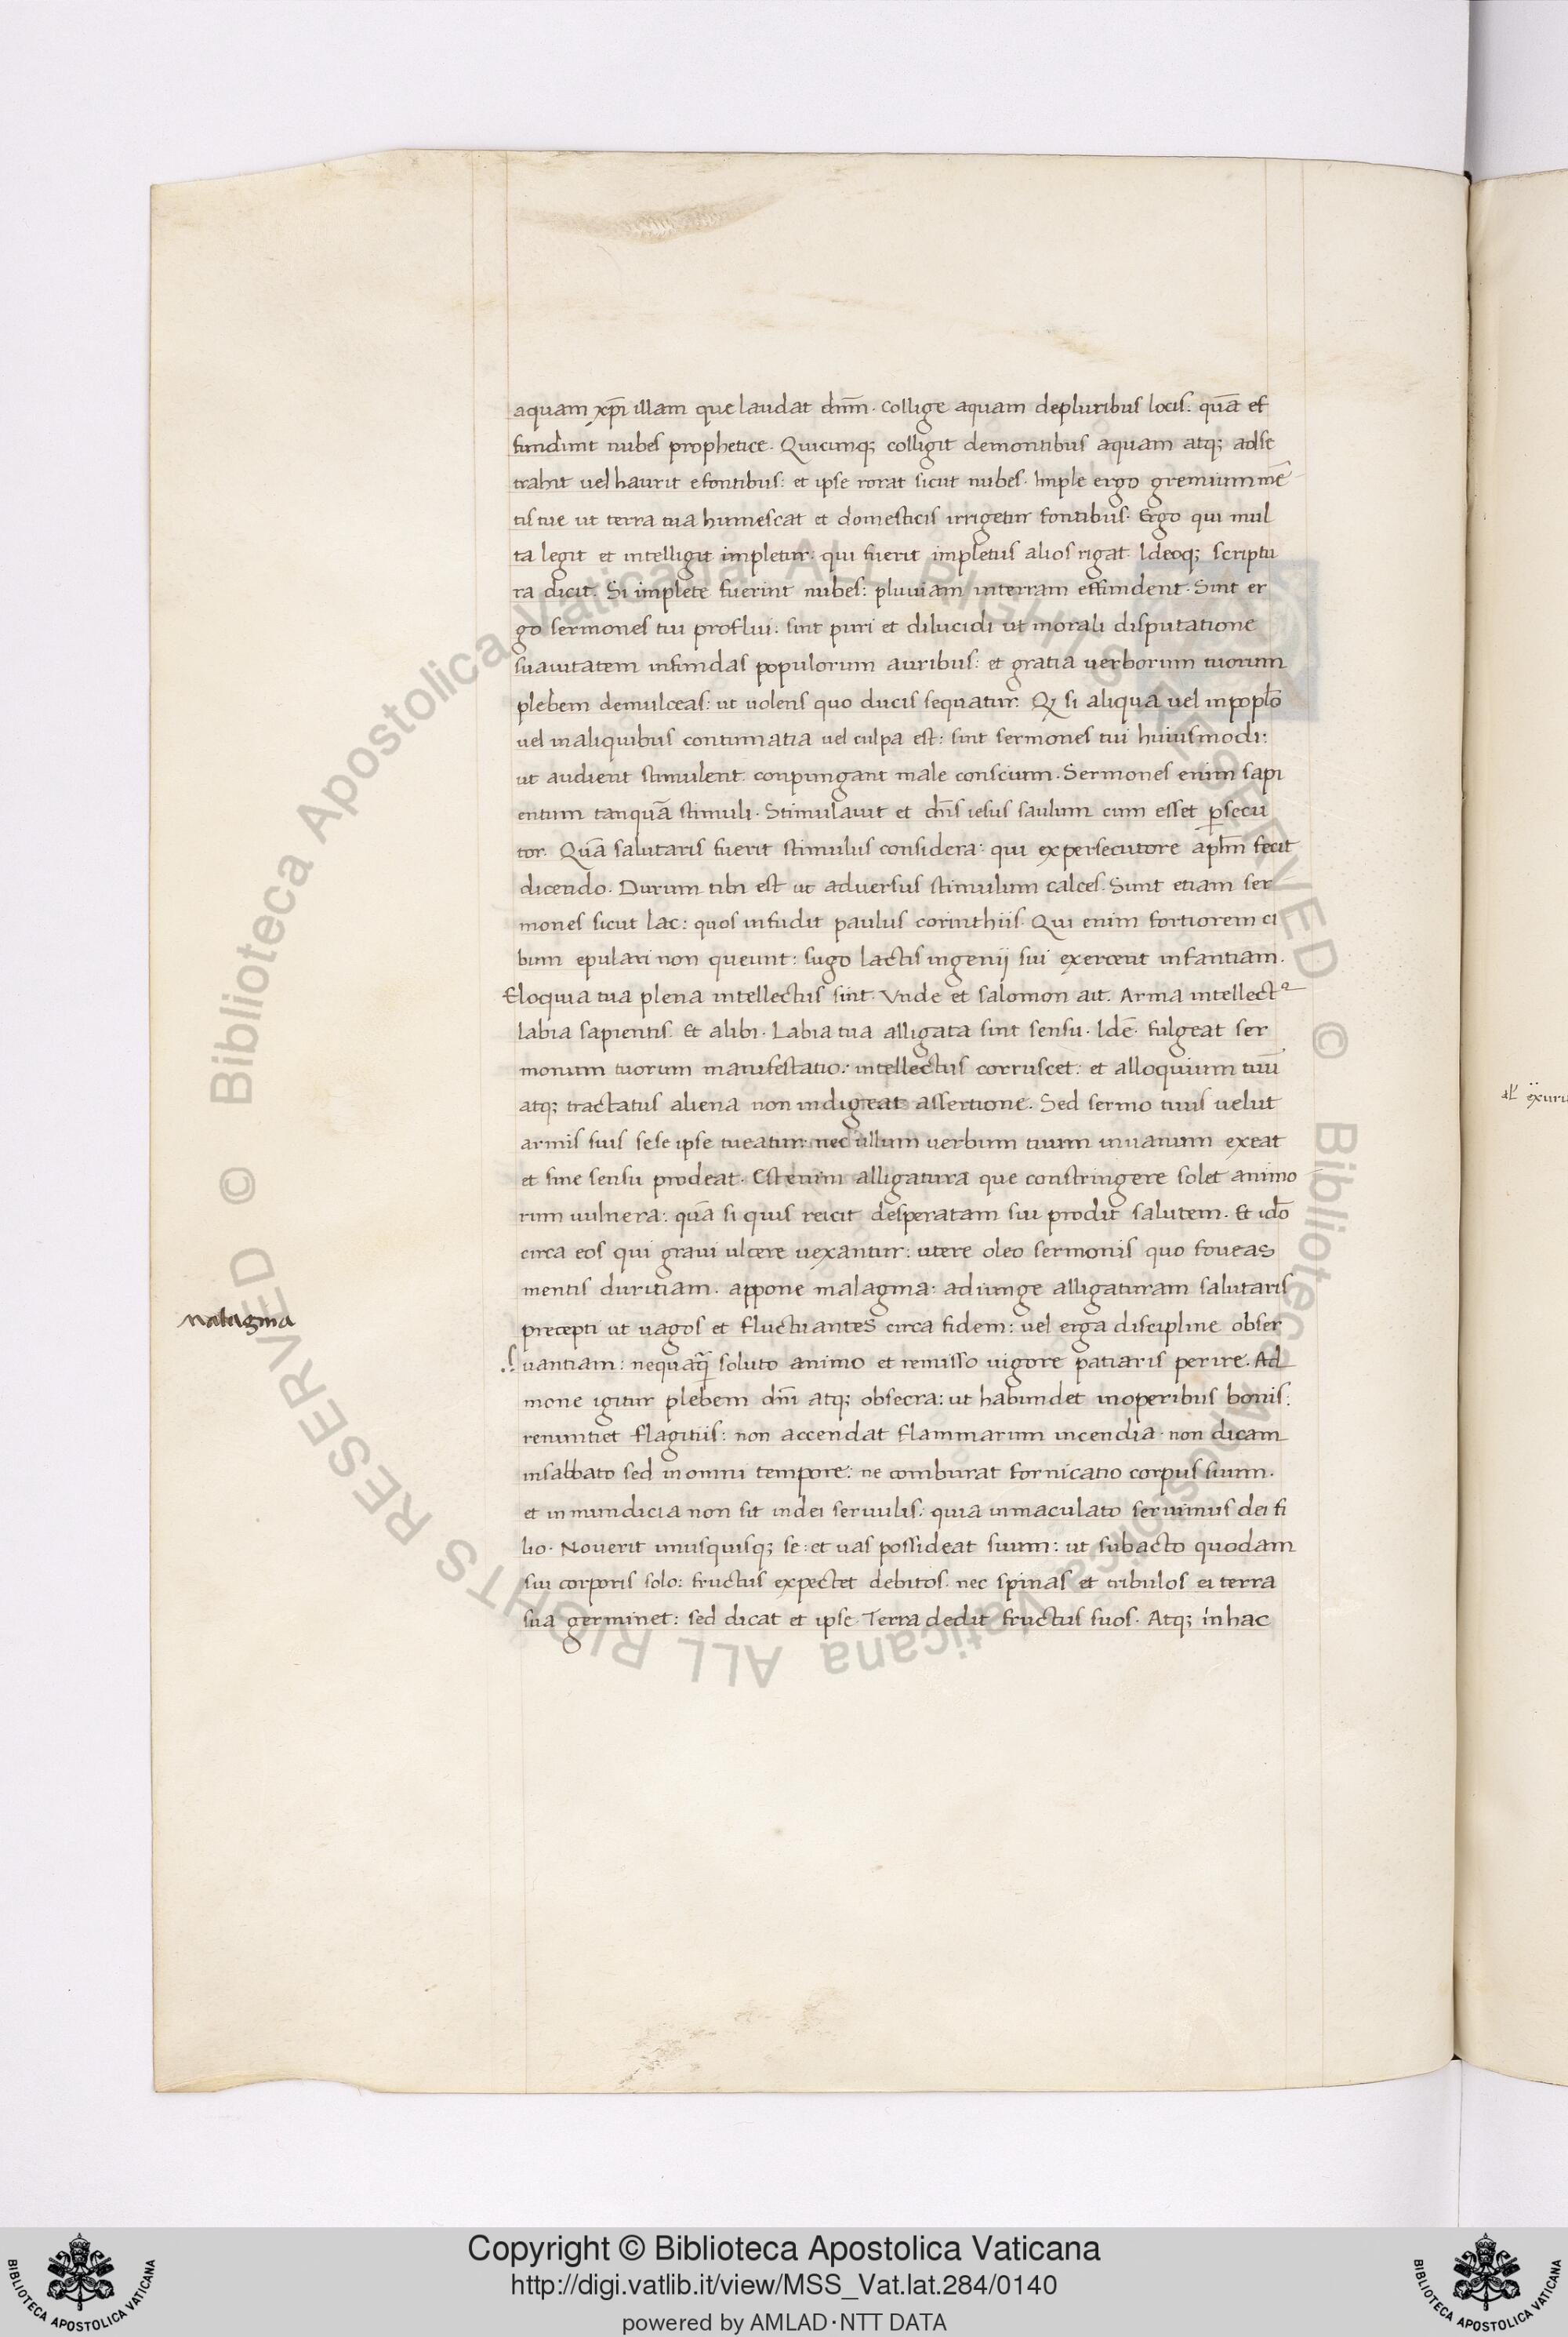 aquam xp̄i illam que laudat dn̄m. Collige aquam depluribus locis. quā ef
fundunt nubes prophetice. Quicunq; colligit demontibus aquam atq; adse
trahit uel haurit efontibus: et ipse rorat sicut nubes. Imple ergo gremium mē
tis tue ut terra tua humescat et domesticis irrigetur fontibus. Ergo qui mul
ta legit et intelligit impletur: qui fuerit impletus alios rigat. Ideoq; scriptu
ra dicit. Si implete fuerint nubes: pluuiam interram effundent. Sint er
go sermones tui proflui. sint puri et dilucidi ut morali disputatione
suauitatem infundas populorum auribus: et gratia uerborum tuorum
plebem demulceas: ut uolens quo ducis sequatur. Qz si aliqua uel inpoplo̅
uel inaliquibus contumatia uel culpa est: sint sermones tui huiusmodi:
ut audient stimulent. conpungant male conscium. Sermones enim sapi
entum tanquā stimuli. Stimulauit et dn̄s iesus saulum cum esset p̱secu
tor. Quā salutaris fuerit stimulus considera: qui expersecutore apl̄m fecit
dicendo. Durum tibi est ut aduersus stimulum calces. Sunt etiam ser
mones sicut lac: quos infudit paulus corinthiis. Qui enim fortiorem ci
bum epulari non queunt: sugo lactis ingenij sui exercent infantiam.
Eloquia tua plena intellectus sint. Vnde et salomon ait. Arma intellectꝰ
labia sapientis. Et alibi. Labia tua alligata sint sensu. Idē. fulgeat ser
monum tuorum manifestatio: intellectus corruscet: et alloquium tuū
atq; tractatus aliena non indigeat assertione. Sed sermo tuus uelut
armis suis sese ipse tueatur: nec ullum uerbum tuum inuanum exeat
et sine sensu prodeat. Est enim alligatura que constringere solet animo
rum uulnera: quā si quis reicit desperatam sui prodit salutem. Et ido̅
circa eos qui graui ulcere uexantur: utere oleo sermonis quo foueas
mentis duritiam. appone malagma: adiunge alligaturam salutaris
precepti ut uagos et fluctuantes circa fidem: uel erga discipline obser
uantiam: nequaq̄ soluto animo et remisso uigore patiaris perire. Ad
mone igitur plebem dn̄i atq; obsecra: ut habundet inoperibus bonis:
renuntiet flagitiis: non accendat flammarum incendia. non dicam
insabbato sed in omni tempore: ne comburat fornicatio corpus suum.
et inmundicia non sit indei seruulis: quia inmaculato seruimus dei fi
lio. Nouerit unusquisq; se: et uas possideat suum: ut subacto quodam
sui corporis solo: fructus expectet debitos. nec spinas et tribulos ei terra
sua germinet: sed dicat et ipse. Terra dedit fructus suos. Atq; in hac
malagma
© Biblioteca Apostolica Vaticana ALL RIGHTS RESERVED © Biblioteca Apostolica Vaticana ALL RIGHTS RESERVED
Copyright © Biblioteca Apostolica Vaticana
http://digi.vatlib.it/view/MSS_Vat.lat.284/0140
powered by AMLAD·NTT DATA
BIBLIOTECA APOSTOLICA VATICANA
BIBLIOTECA APOSTOLICA VATICANA